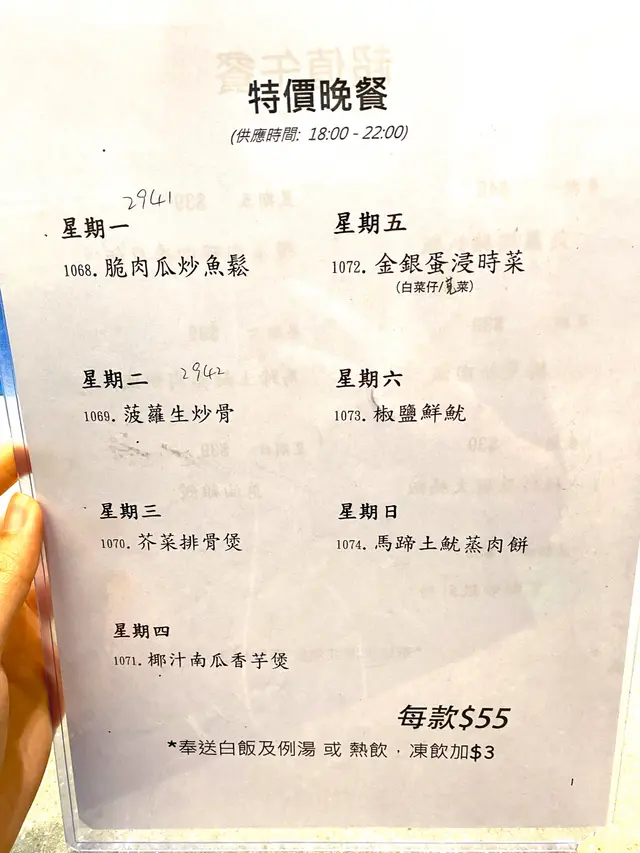 特價晚餐
(供應時間: 18:00 - 22:00)
2941
星期一
1068. 脆肉瓜炒魚鬆
星期二 2942
1069. 菠蘿生炒骨
星期三
1070. 芥菜排骨煲
星期四
1071. 椰汁南瓜香芋煲
星期五
1072. 金銀蛋浸時菜
(白菜仔/莧菜)
星期六
1073. 椒鹽鮮魷
星期日
1074. 馬蹄土魷蒸肉餅
每款$55
*奉送白飯及例湯 或 熱飲，凍飲加$3
1